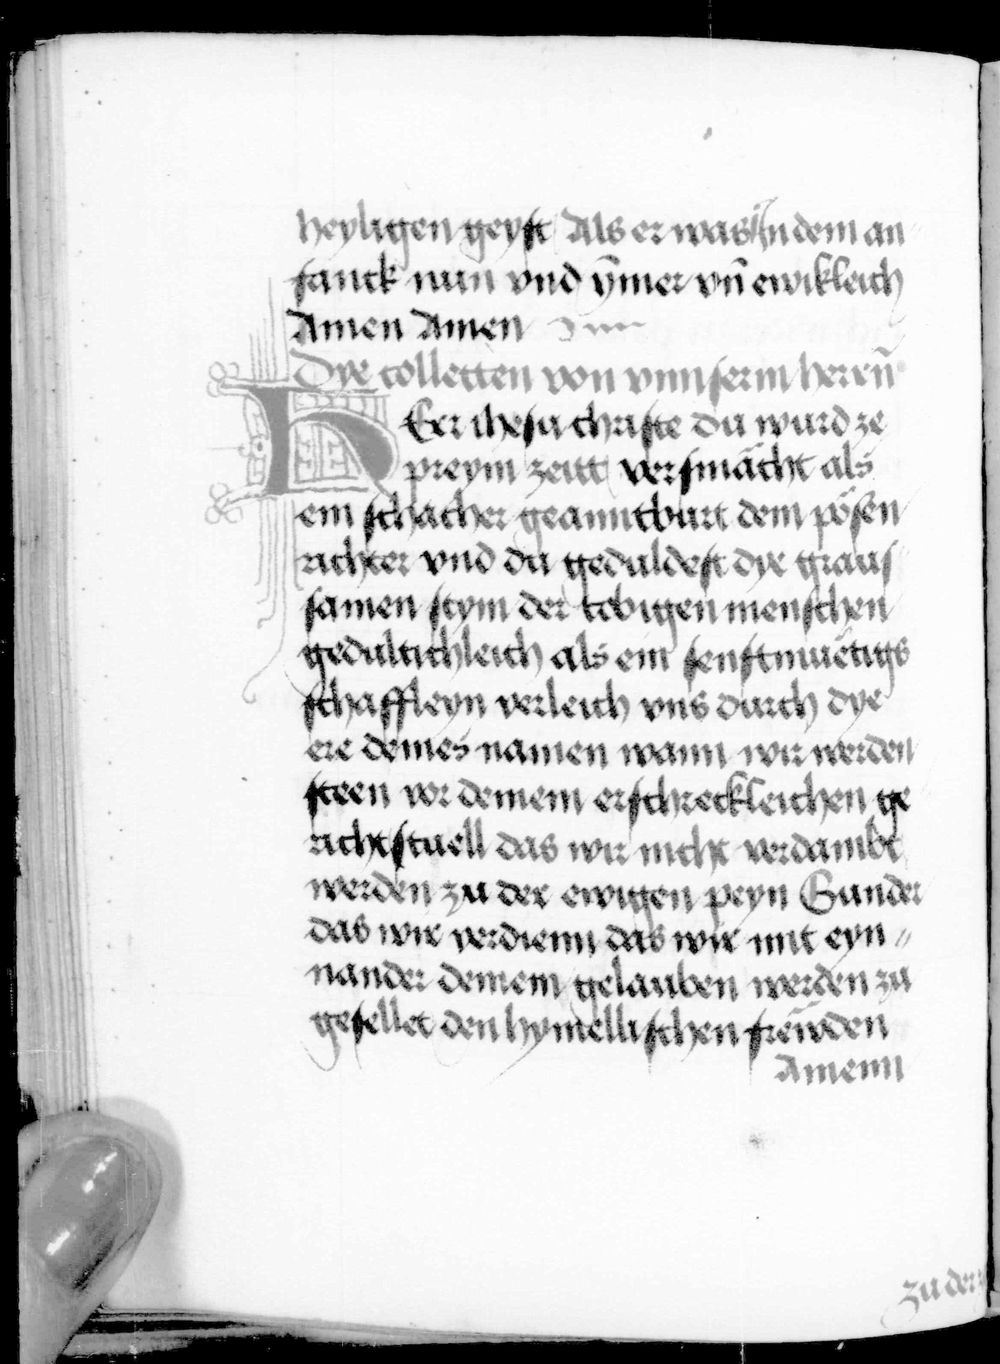 heyligen geyst Als er was In dem an
fanck nun vnd ÿmer vn̄ ewikleich
Amen Amen
Dye collecten von vnnserm herrn̄
HErr ihesu christe du wurd ze
preym zeitt versmächt als
ein schacher geanntburt dem pösen
richter vnd du geduldest dye graus
samen stym der tobigen menschen
gedultichleich als ein senftmuetigs
schaffleyn verleich vns durch dye
ere deines namen wann wir werden
steen vor deinem erschreckleichen ge
richtstuell das wir nicht verdambt
werden zu der ewigen peyn Sunder
das wir verdienn das wir mit eyn〃
nander deinem gelauben werden zu
gesellet den hymellischen freẅden
Amenn
zu der